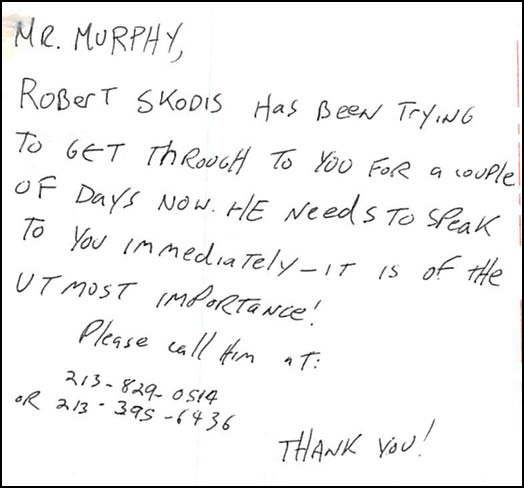 MR. MURPHY,
ROBERT SKODIS HAS BEEN TRYING
TO GET THROUGH TO YOU FOR A COUPLE
OF DAYS NOW. HE NEEDS TO SPEAK
TO YOU IMMEDIATELY - IT IS OF THE
UTMOST IMPORTANCE!
Please call Him AT:
213-829-0514
OR 213-395-6436
THANK YOU!